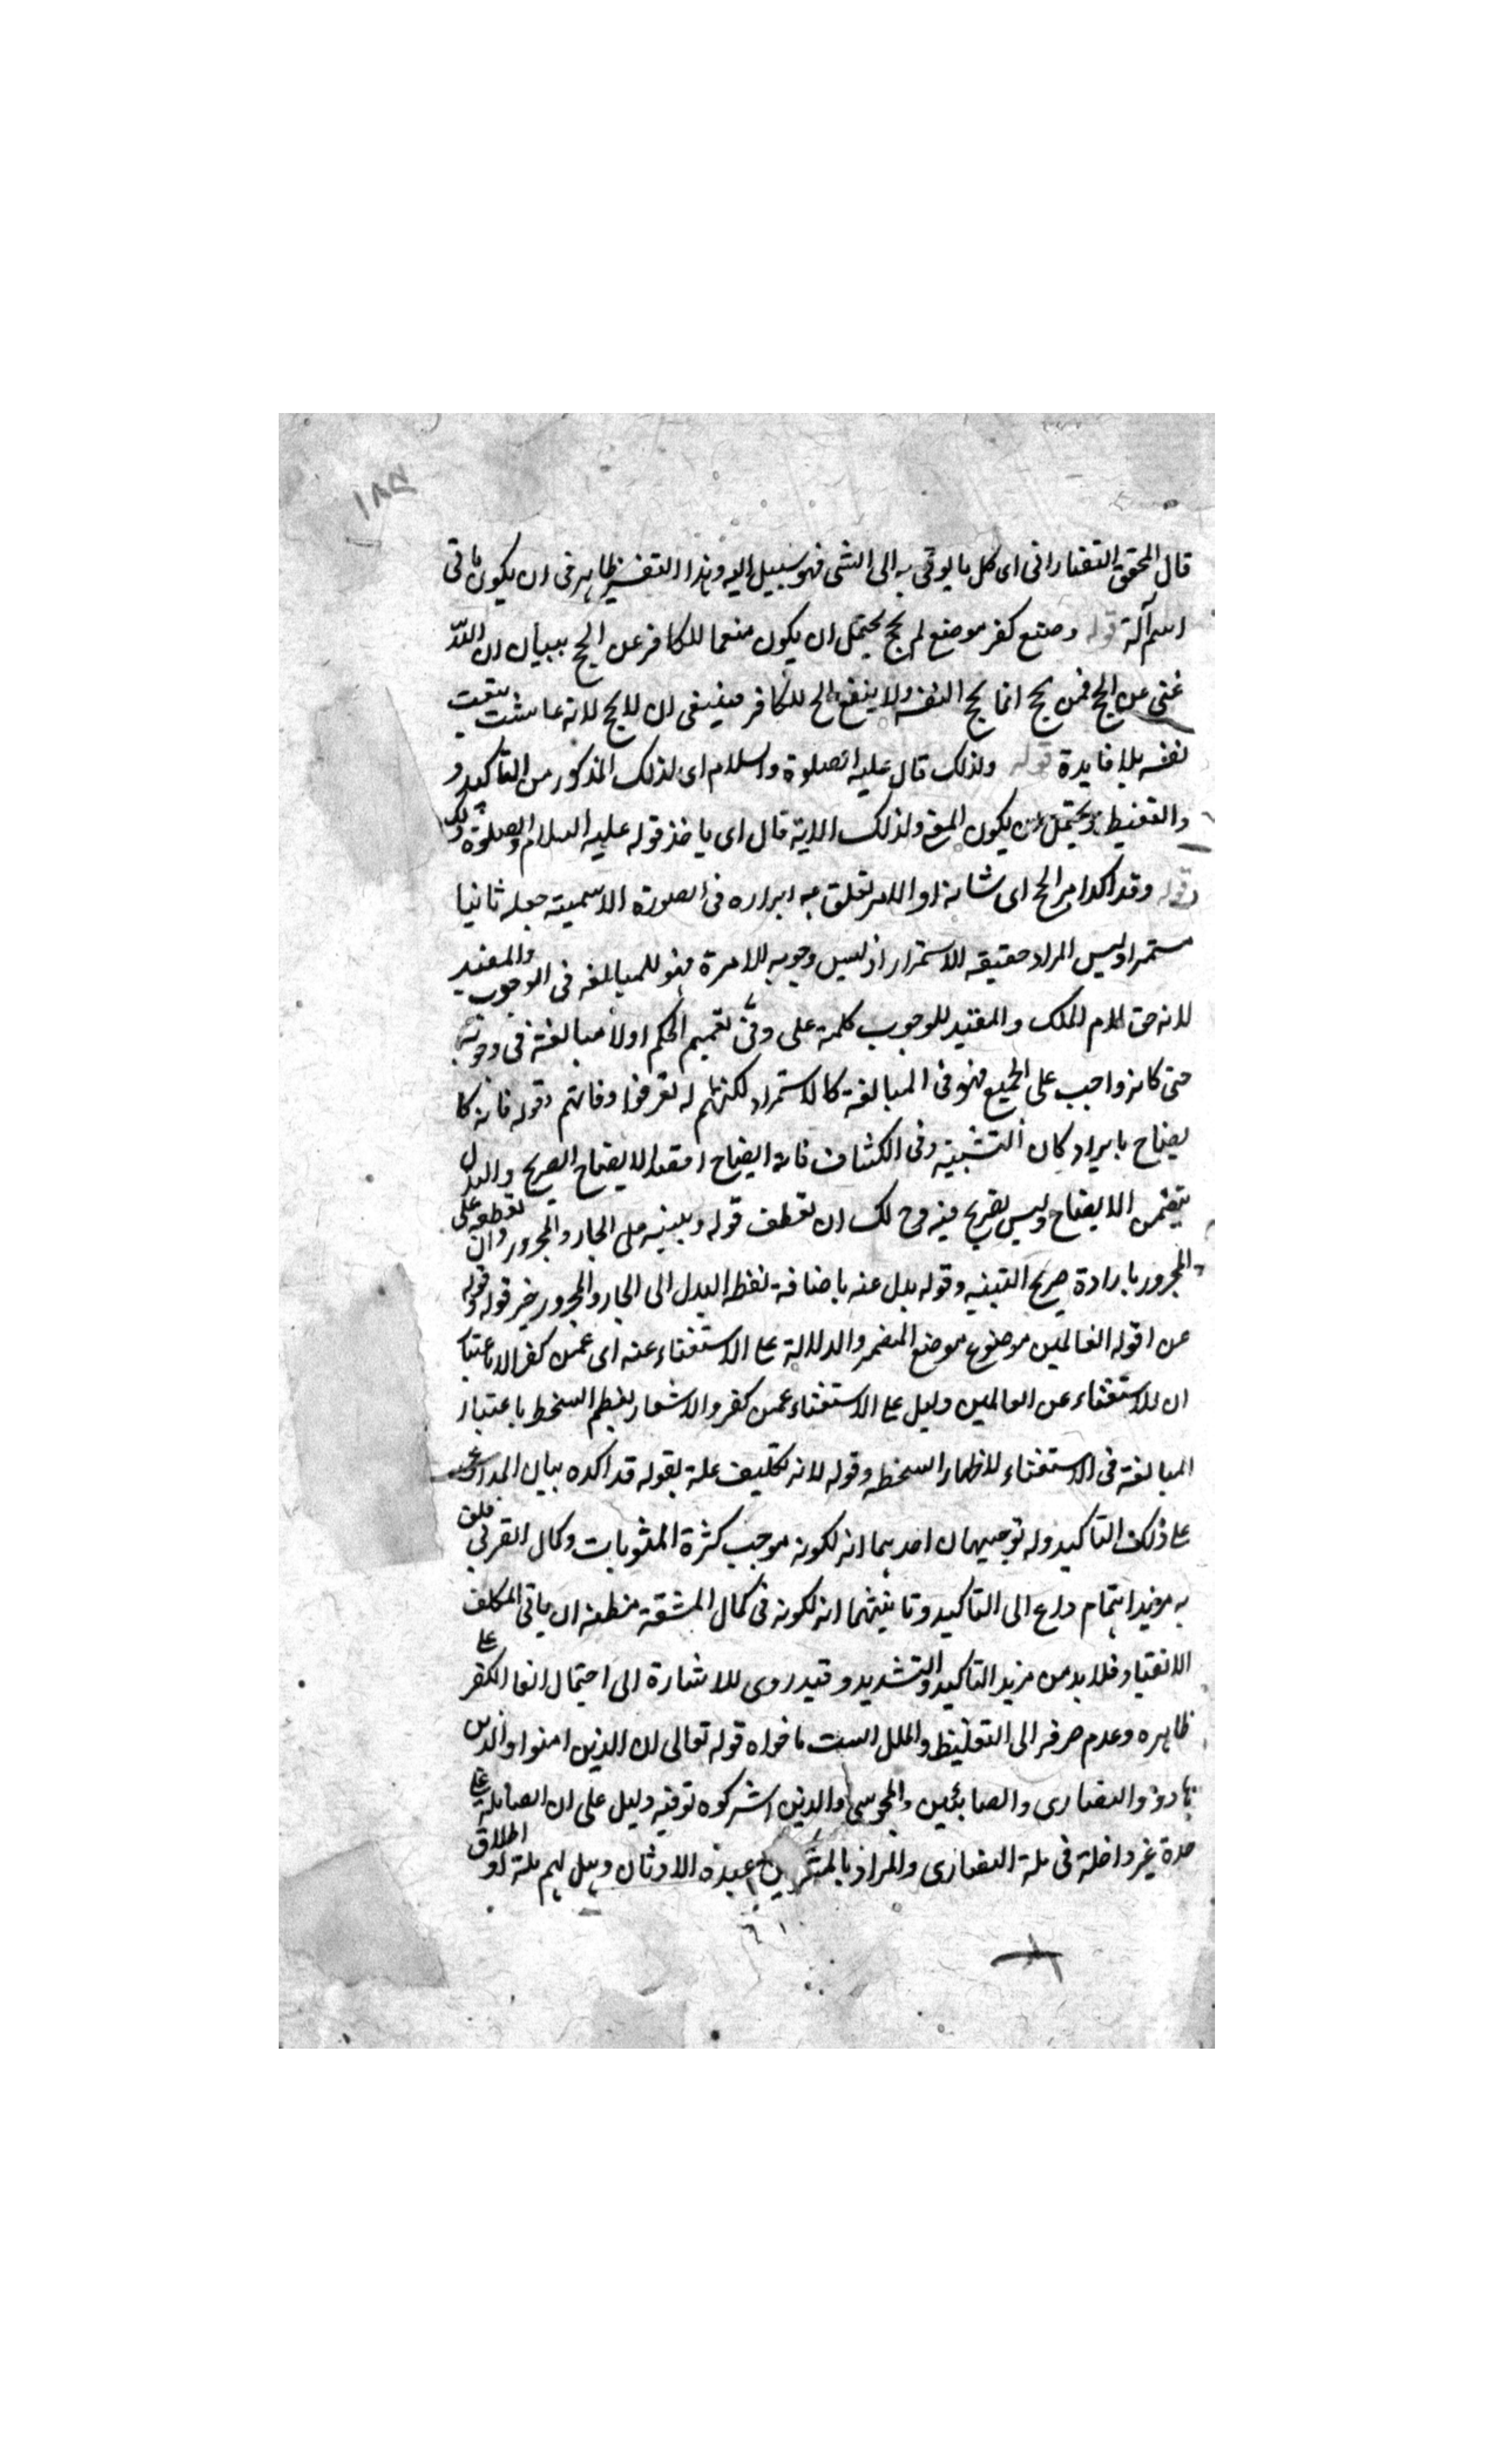 ١٨٥
قال المحقق التفتازانى اى كل ما يوتى به الى الشى فهو سبيل اليه وهذا التفسير ظاهر فى ان يكون ماتى
اسم آلة قوله وضع كفر موضع لم يحج يحتمل ان يكون منعا للكافر عن الحج ببيان ان الله
غنى عن الحج فمن يحج انما يحج لنفسه ولا ينفع الحج للكافر فينبغى ان لا يحج لانه عابث يتعب
نفسه بلا فايدة قوله ولذلك قال عليه الصلوة والسلام اى لذلك المذكور من التأكيد و
والتغليظ ويحتمل ان يكون المعنى ولذلك الاية قال اى ياخذ قوله عليه السلام والصلوة
قوله وقد اكد امر الحج اى شانه او الامر تعلق به ابرازه فى الصورة الاسمية جعله ثانيا
مستمرا وليس المراد حقيقة الاستمرار اذ ليس وجوبه الا مرة فهو للمبالغة فى الوجوب والمفيد
لانه حق لام الملك والمفيد للوجوب كلمة على وفى تعميم الحكم اولا مبالغة فى وجوبه
حتى كانه واجب على الجميع فهو فى المبالغة كالاستمرار لكنهم لم تعرفوا وقوله فانه كا
يضاح بايراد كان التشبيه وفى الكشاف فانه ايضاح الايضاح الصريح والبدل
يتضمن الايضاح وليس بصريح فيه وح لك ان تعطف قوله وتبنيه على الجار والمجرور وان تعطفه على
المجرور بارادة صريح التبنيه وقوله بدل عنه باضافة لفظ البدل الى الجار والمجرور خبر قوله وقوله
عن قوله العالمين موضوع موضع المضمر والدلالة على الاستغناء عنه اى عمن كفر الا باعتبا
ان للاستغناء عن العالمين دليل على الاستغناء عمن كفر والاشعار بعظم السخط باعتبار
المبالغة فى الاستغناء لاظهار السخط وقوله لانه تكليف علة لقوله قد اكده بيان
على ذلك التأكيد وله توجيهان احدهما انه لكونه موجب كثرة المثوبات وكمال القربى خلق
به مزيد اهتمام داع الى التاكيد وثانيهما انه لكونه فى كمال المشقة مظنة ان ياتى المكلف
الانقياد فلا بد من مزيد التاكيد والتشديد وقيد روى للاشارة الى احتمال الكفر على
ظاهره وعدم صرفه الى التغليظ والملل الست ماخوذة قوله تعالى ان الذين امنوا والذين
هادوا والنصارى والصابئين والمجوس والذين اشركوا وفيه دليل على ان الصابئة على
حدة غير داخلة فى ملة النصارى والمراد بالمشركين عبدة الاوثان وهل لهم ملة او اطلاق